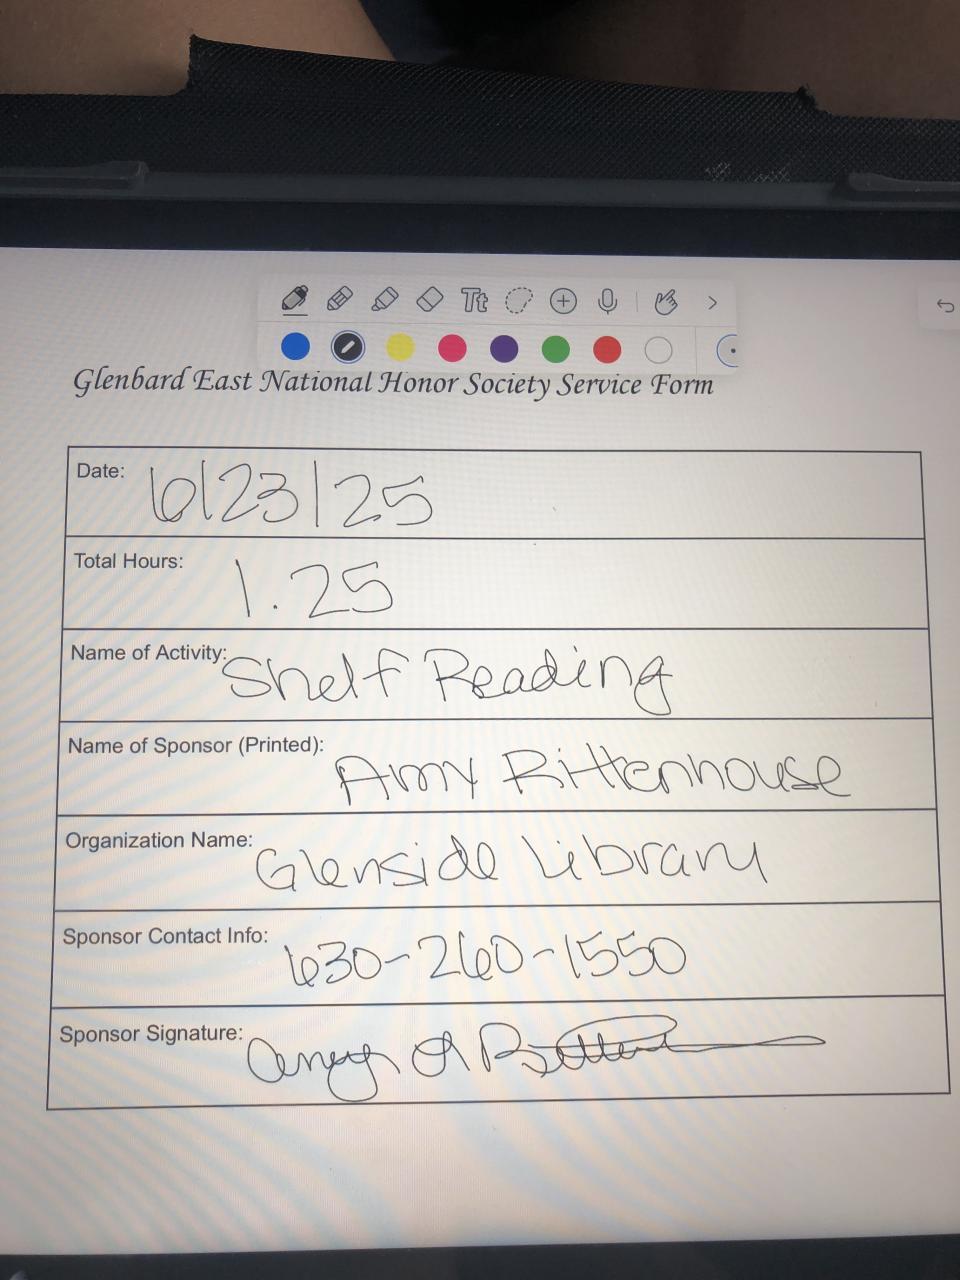 Tt
Glenbard East National Honor Society Service Form
Date: 6/23/25
Total Hours: 1.25
Name of Activity: Shelf Reading
Name of Sponsor (Printed): Amy Rittenhouse
Organization Name: Glenside Library
Sponsor Contact Info: 630-260-1550
Sponsor Signature: